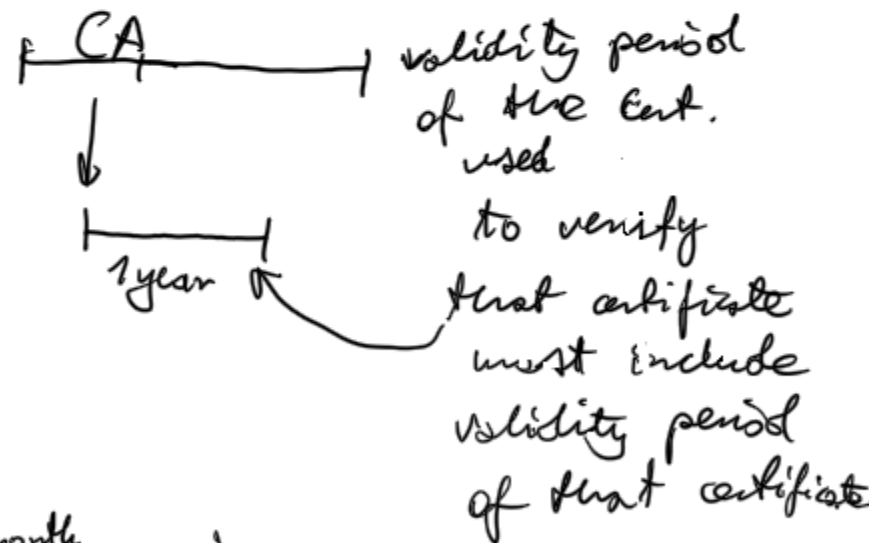 CA
validity period
of the Cert.
used
to verify
1 year
that certificate
must include
validity period
of that certificate